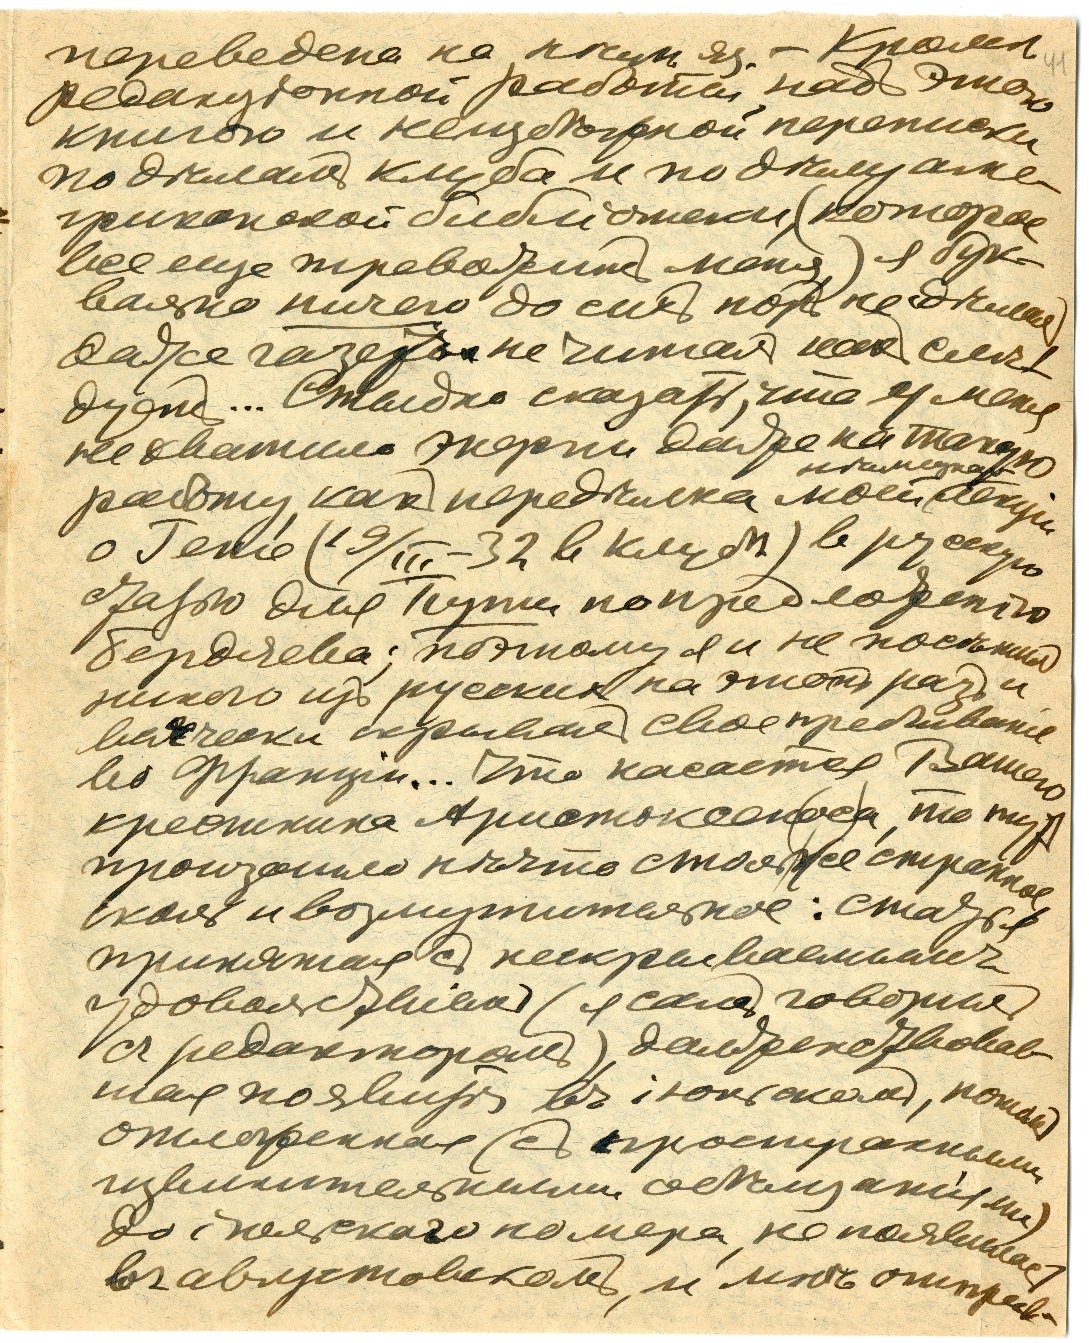 переведена на нѣм. яз. — Кромѣ 41
редакціонной работы надъ этою
книгою и неизбѣжной переписки
по дѣламъ клуба и по дѣлу аме-
риканской библіотеки, (которое
все еще тревожитъ меня,) я бук-
вально ничего до сихъ поръ не дѣлалъ,
даже газеты не читалъ какъ слѣ-
дуетъ... Стыдно сказать, что у меня
не хватило энергіи даже на такую
работу, какъ передѣлка моей нѣмецкой лекціи
о Гете (19/III–32 въ клубѣ) в русскую
статью для Пути по предложенію
Бердяева; поэтому я и не посѣтилъ
никого изъ русскихъ на этотъ разъ и
всячески скрывалъ свое пребываніе
во Франціи... Что касается Вашего
крестника Аристоксен(ос)а, то тутъ
произошло нѣчто столь же странное,
сколь и возмутительное: статья
принятая съ нескрываемымъ
удовольствіемъ (я самъ говорилъ
съ редакторомъ), долженствовав-
шая появиться въ іюньскомъ, потомъ
отложенная (съ пространными
извинительными соболѣзнованіями)
до іюльскаго номера, не появилась
въ августовскомъ, и мнѣ отправ-